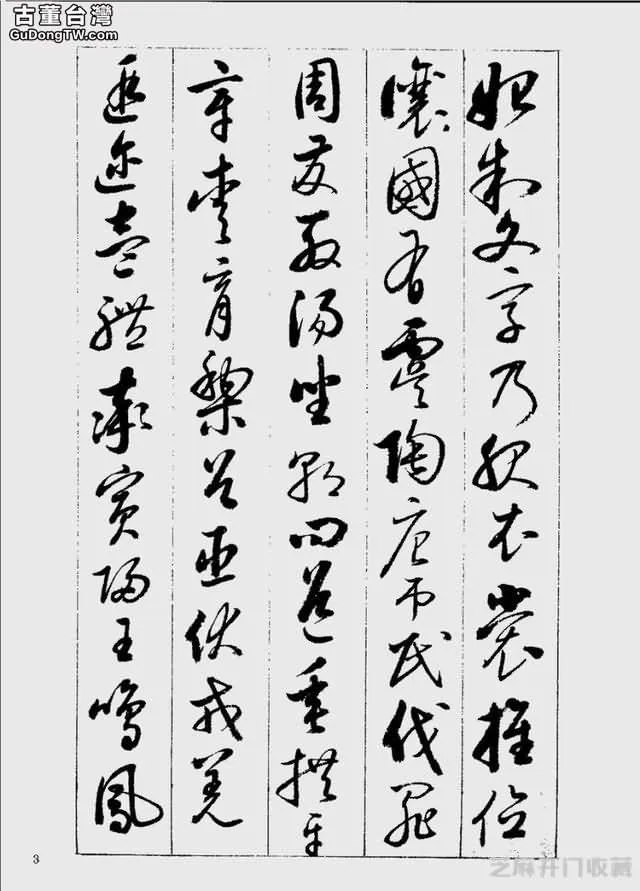 古董台灣
GuDongTW.com
始制文字乃服衣裳推位
讓國有虞陶唐吊民伐罪
周發殷湯坐朝問道垂拱平
章愛育黎首臣伏戎羌
遐迩壹體率賓歸王鳴鳳
3
芝麻开门收藏